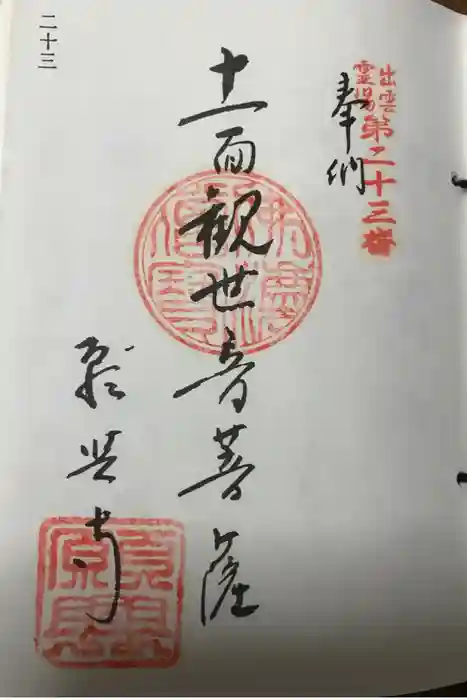 出雲
靈場
第二十三番
奉納
十一面観世音菩薩
願興寺
二十三